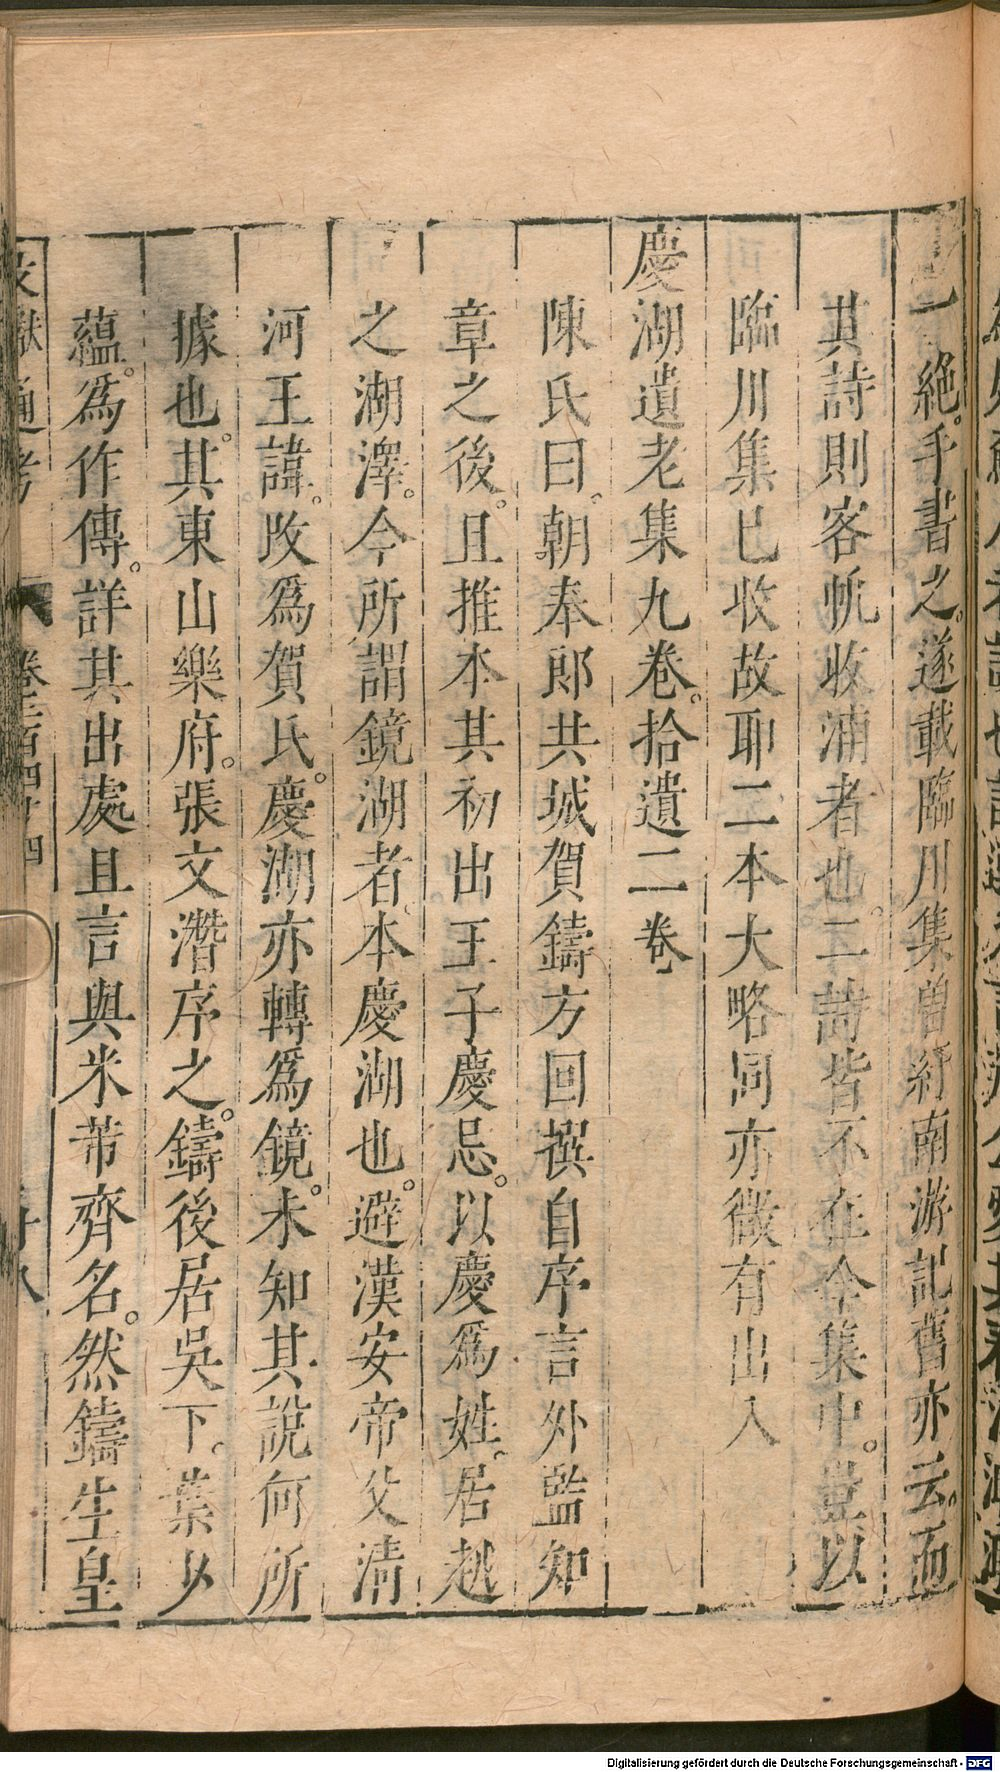 絕。手書之。遂載臨川集曽紆南游記舊亦云。而
其詩則客帆收浦者也。二詩皆不在今集中。豈以
臨川集已收故耶二本大略同亦微有出入
慶湖遺老集九卷。拾遺二卷
陳氏曰。朝奉郎共城賀鑄方回撰自序言外監知
章之後。且推本其初出王子慶忌。以慶爲姓。居越
之湖澤。今所謂鏡湖者。本慶湖也。避漢安帝父清
河王諱。改爲賀氏。慶湖亦轉爲鏡。未知其說何所
據也。其東山樂府。張文潛序之。鑄後居吳下。葉少
蘊。爲作傳。詳其出處且言與米芾齊名。然鑄生皇
文獻通考 卷二百四十四
Digitalisierung gefördert durch die Deutsche Forschungsgemeinschaft - DFG